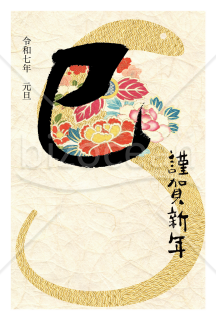 令和七年 元旦
巳
謹賀新年